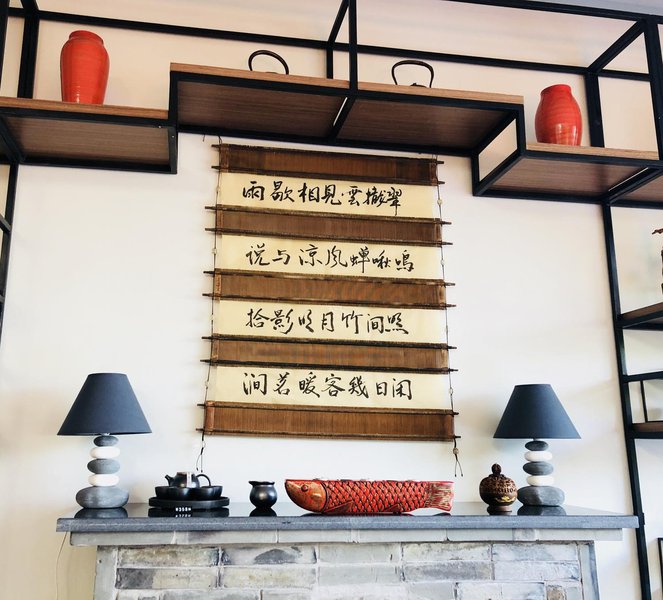 雨歇相見雲撤翠
说与凉风蝉啾鸣
拾影明月竹间照
涧茗暖客幾日闲